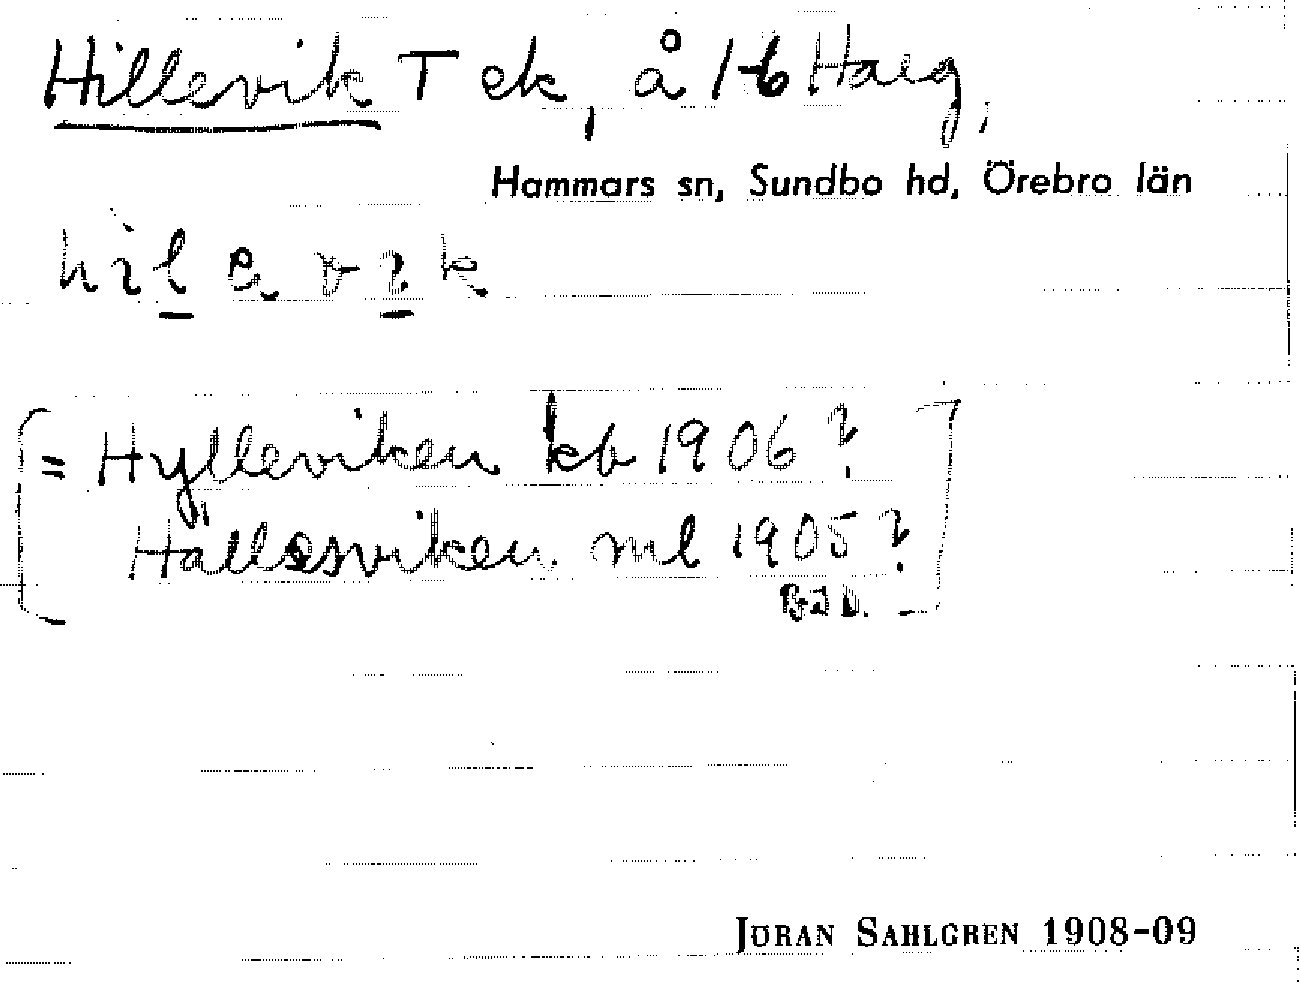 Hillevik T ek, å 1/6 Harg,
Hammars sn, Sundbo hd, Örebro län
hilevik
[= Hylleviken kb 1906?
Hällesviken ml 1905?]
JÖRAN SAHLGREN 1908-09